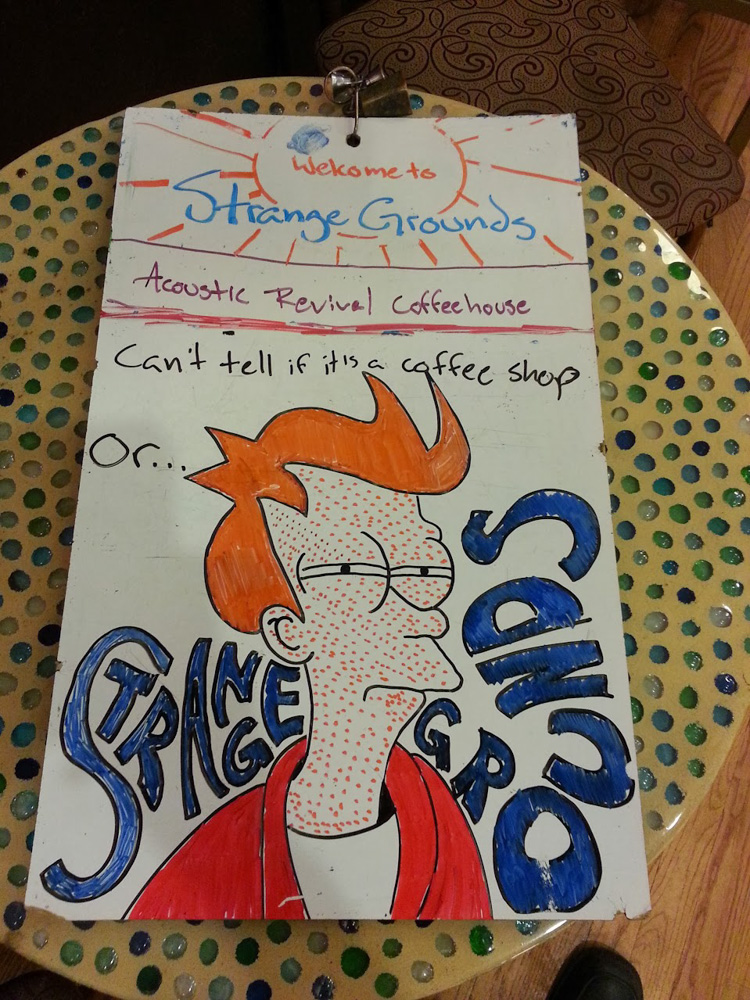 Welcome to
Strange Grounds
Acoustic Revival Coffeehouse
Can't tell if it's a coffee shop
Or...
STRANGE
GROUNDS